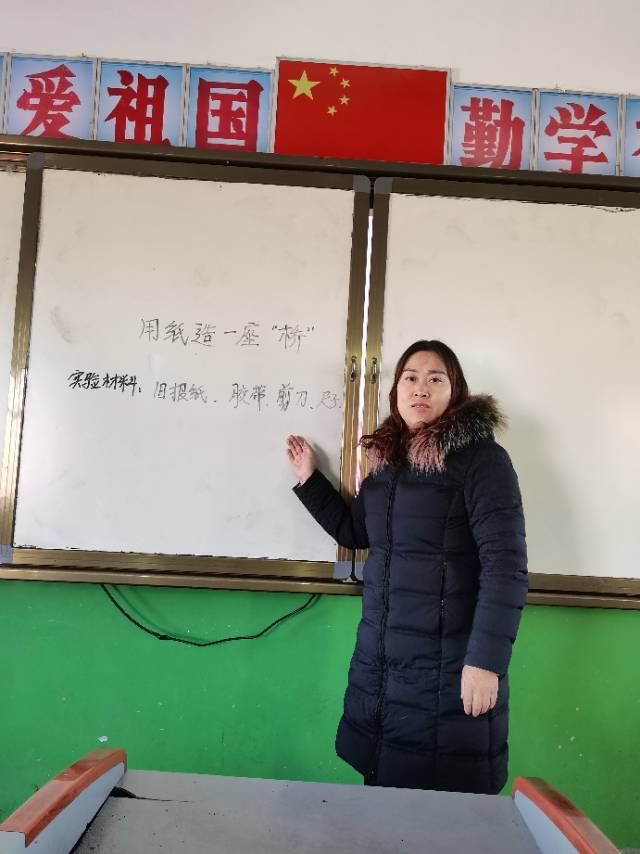 爱祖国 勤学
用纸造一座“桥”
实验材料：旧报纸、胶带、剪刀、尺子、